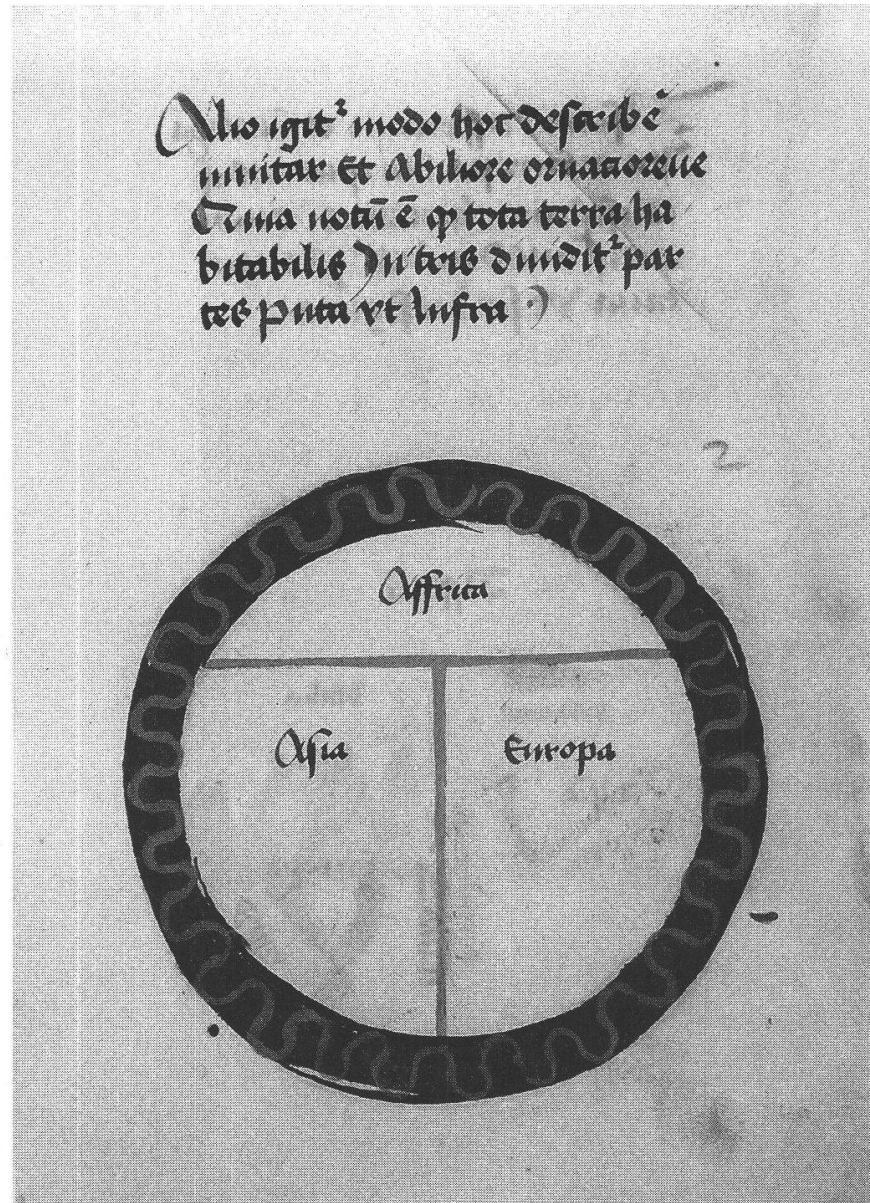 Alio igit² modo hoc describē
nnitar Et Abiliore ornatioreue
Quia notū ē ꝙ tota terra ha
bitabilis In tris diuidit² par
tes puta vt Infra
2
Affrica
Asia
Europa